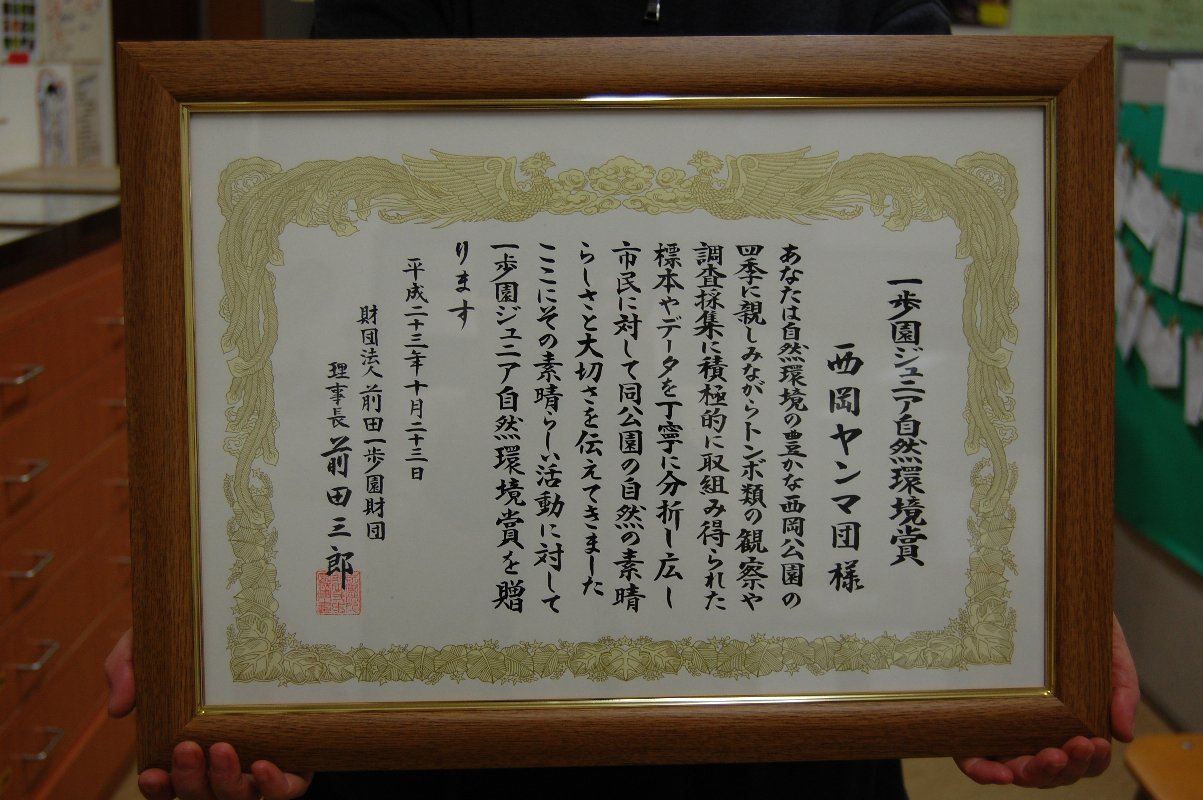 一歩園ジュニア自然環境賞
西岡ヤンマ団様
あなたは自然環境の豊かな西岡公園の
四季に親しみながらトンボ類の観察や
調査採集に積極的に取組み得られた
標本やデータを丁寧に分析し広し
市民に対して同公園の自然の素晴
らしさと大切さを伝えてきました
ここにその素晴らしい活動に対して
一歩園ジュニア自然環境賞を贈
ります
平成二十三年十月二十三日
財団法人前田一歩園財団
理事長前田三郎